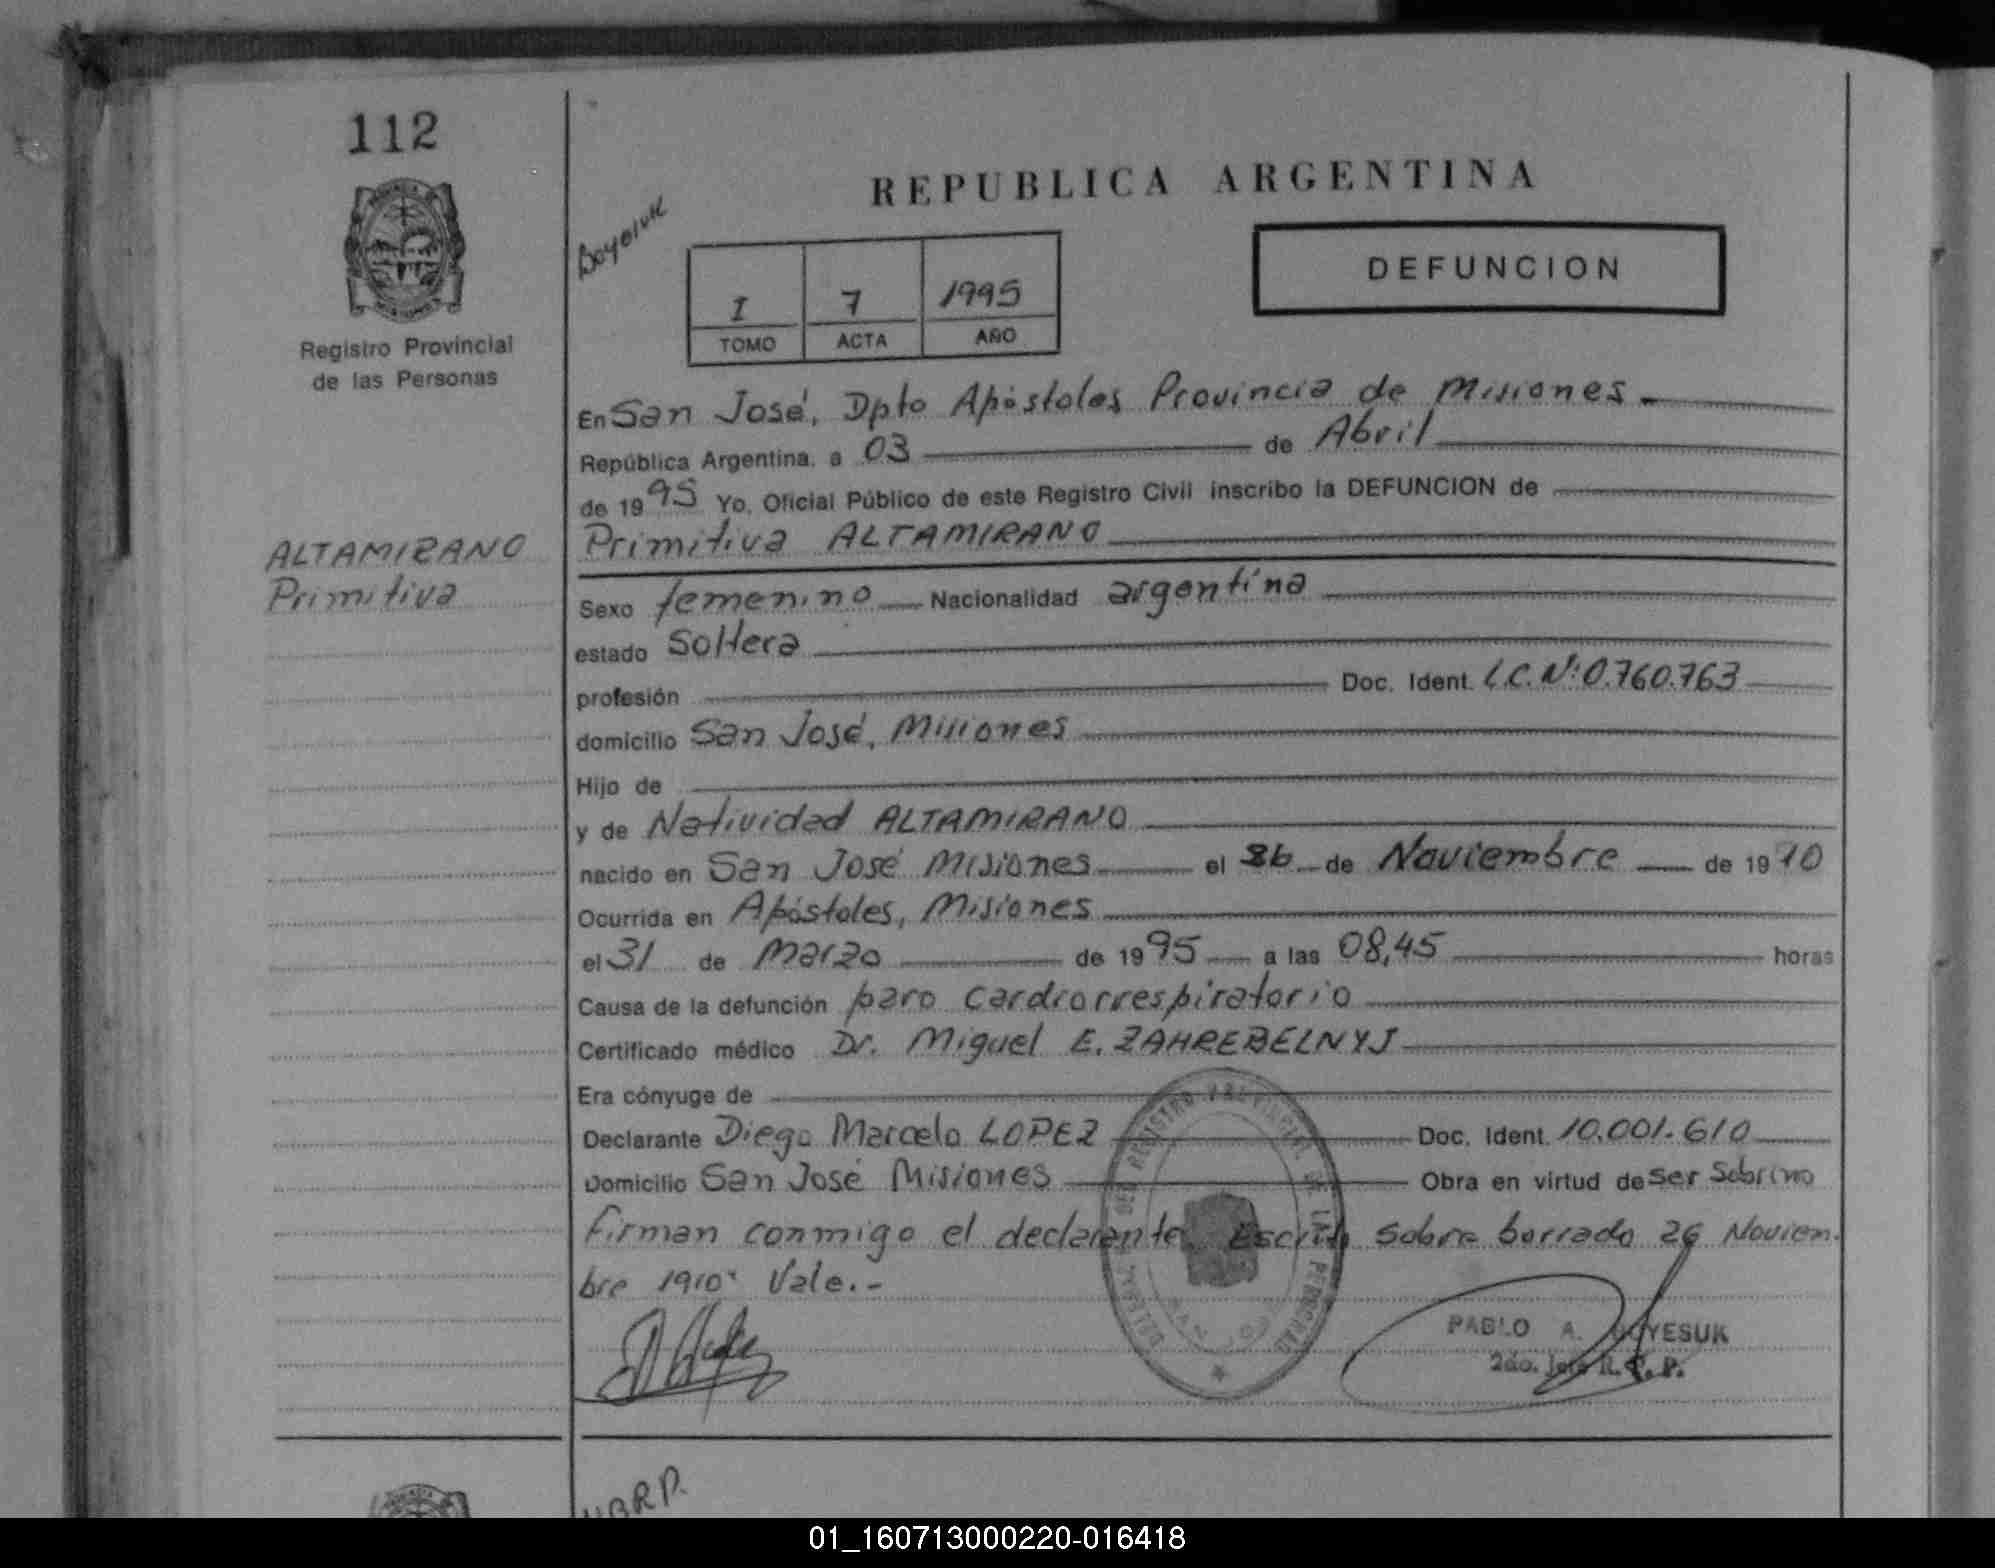 112
Registro Provincial
de las Personas
ALTAMIRANO
Primitiva
REPUBLICA ARGENTINA
Boyesuk
I 7 1995
TOMO ACTA AÑO
DEFUNCION
En San José, Dpto Apóstoles Provincia de Misiones.
República Argentina, a 03 de Abril
de 1995 Yo, Oficial Público de este Registro Civil inscribo la DEFUNCION de
Primitiva ALTAMIRANO
Sexo femenino Nacionalidad argentina
estado Soltera
profesión Doc. Ident. L.C. Nº: 0.760.763
domicilio San José, Misiones
Hijo de
y de Natividad ALTAMIRANO
nacido en San José Misiones el 26 de Noviembre de 1910
Ocurrida en Apóstoles, Misiones
el 31 de Marzo de 1995 a las 08,45 horas
Causa de la defunción paro cardiorrespiratorio
Certificado médico Dr. Miguel E. ZAHREBELNYJ
Era cónyuge de
Declarante Diego Marcelo LOPEZ Doc. Ident. 10.001.610
Domicilio San José Misiones Obra en virtud de ser sobrino
firman conmigo el declarante. Escrito sobre borrado 26 Noviem.
bre 1910" Vale.-
REGISTRO PROVINCIAL DE LAS PERSONAS
PABLO A. BOYESUK
2do. Jefe R.P.P.
01_160713000220-016418